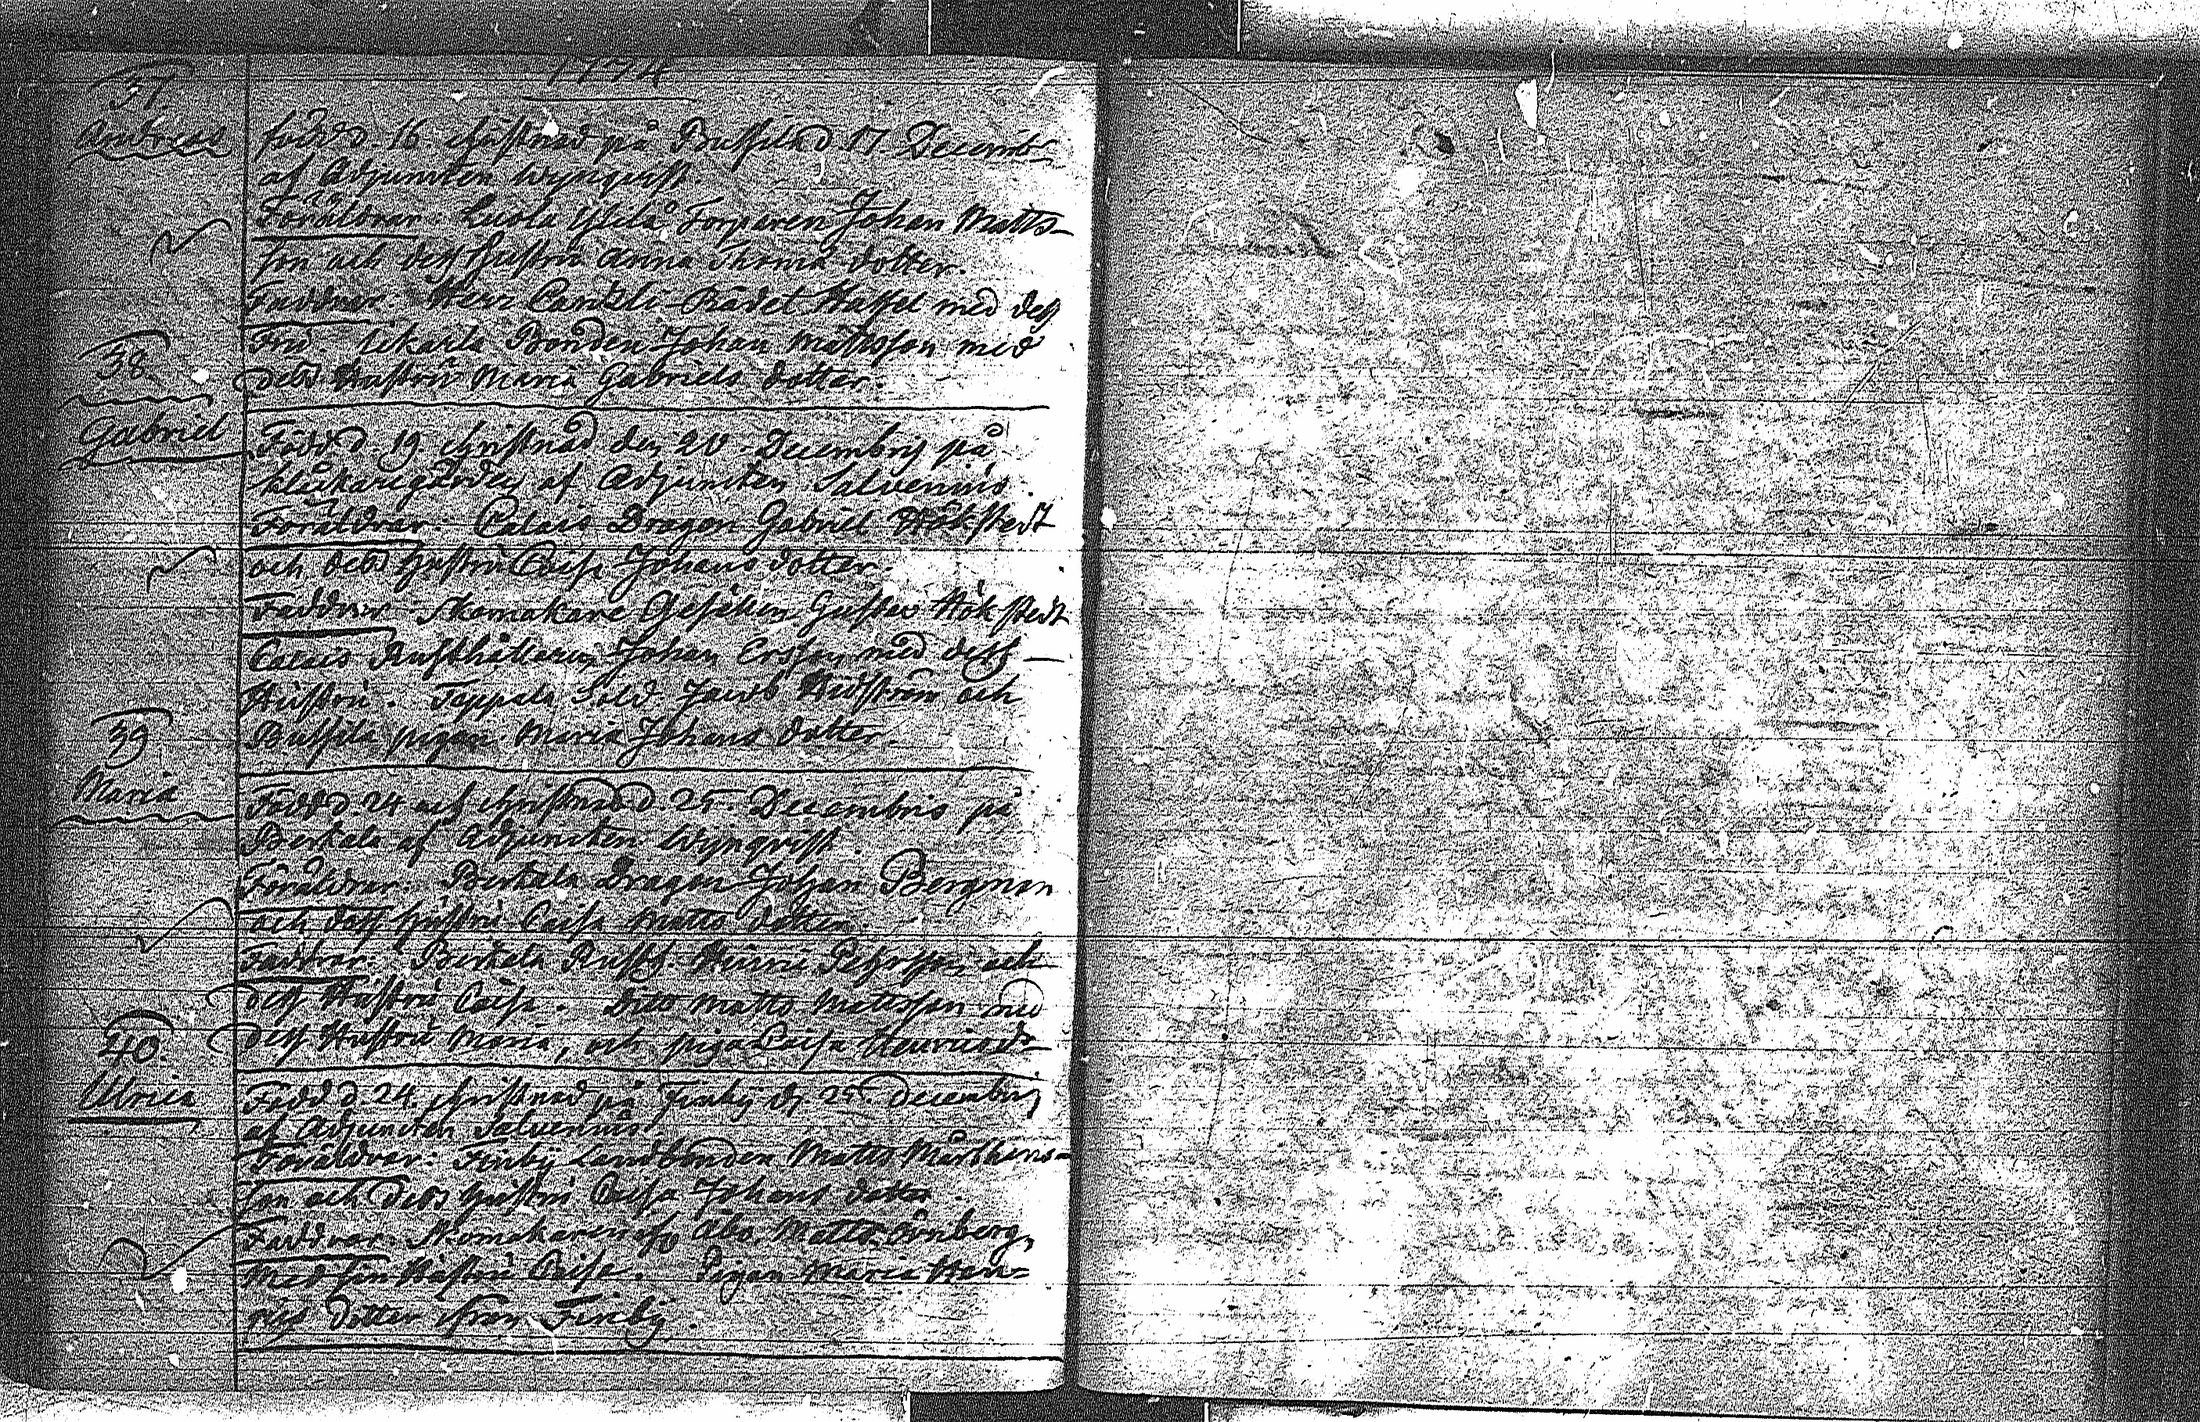 1774
37.
Andreas
född d. 16. christnad på Bussila d 17 Decemb:
af Adjuncten Wynqvist
Föräldrar: Torparen Johan Matts-
son och dess hustru Anna Thomæ dotter.
Faddrar: Herr Cantzli-Rådet Hassel med dess
Fru Uckarla Bonden Johan Mattsson med
dess Hustru Maria Gabriels dotter.
38.
Gabriel
Född d. 19 christnad den 20 Decembris på
klåckaregården af Adjuncten Salvenius.
Föräldrar: Calais Dragon Gabriel Hökstedt
och dess hustru Caisa Johans dotter.
Faddrar: Skomakare Gesällen Gustav Hökstedt
Calais Rusthållaren Johan Ersson med dess
Hustru. Toppala Sold. Jacob och
Bussila pigan Maria Johans dotter.
39
Maria
Född d. 24 och christnad d. 25. Decembris på
Berkala af Adjuncten Wynqvist.
Föräldrar: Berkala Dragon Johan Bergman
och dess hustru Caisa Matts dotter.
Faddrar: Berkala Rusth. Hinric Pehrsson och
dess Hustru Caisa. Dito Matts Mattsson med
dess Hustru Maria, och piga Caisa Henrics dr
40.
Ulrica
Född d. 24. christnad på Finby d. 25 Decembris
af Adjuncten Salvenius
Föräldrar: Finby Landbonden Matts Mårthens-
son och dess hustru Caisa Johans dotter.
Faddrar: Skomakaren ifr. Åbo Matts Örnberg,
med sin Hustru Caisa. Pigan Maria Hen-
rics dotter ifrån Finby.